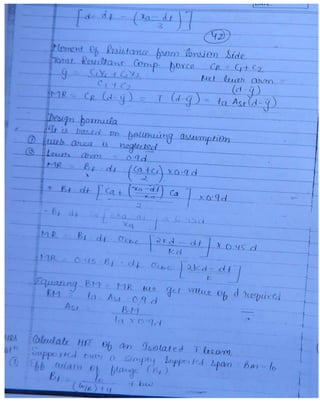 [d - df - (xa - df)/3]
42
Moment Of Resistance from Tension Side
Total Resultant Comp force CR = C1 + C2
ȳ = C1x1 + C2x2 / C1 + C2 Net lever arm = (d-ȳ)
MR = CR (d-ȳ) = T (d-ȳ) = ta Ast (d-ȳ)
Design formula
It is based on following assumption
① web area is neglected
② Lever arm = 0.9d
MR = Bf df (ca+c1)/2 × 0.9d
= Bf df [ca + (xa-df)/xa ca]/2 × 0.9d
MR = Bf df σcbc [2kd - df / kd] × 0.45 d
MR = 0.45 Bf df σcbc [2kd - df / k]
Equating BM = MR we get value of d required
BM = ta Ast 0.9d
Ast = BM / ta × 0.9d
Calculate MR Of an Isolated T beam
Supported over a Simply Supported span
① Eff width of flange (Bf)
Bf = lo / (lo/B) + 4 + bw